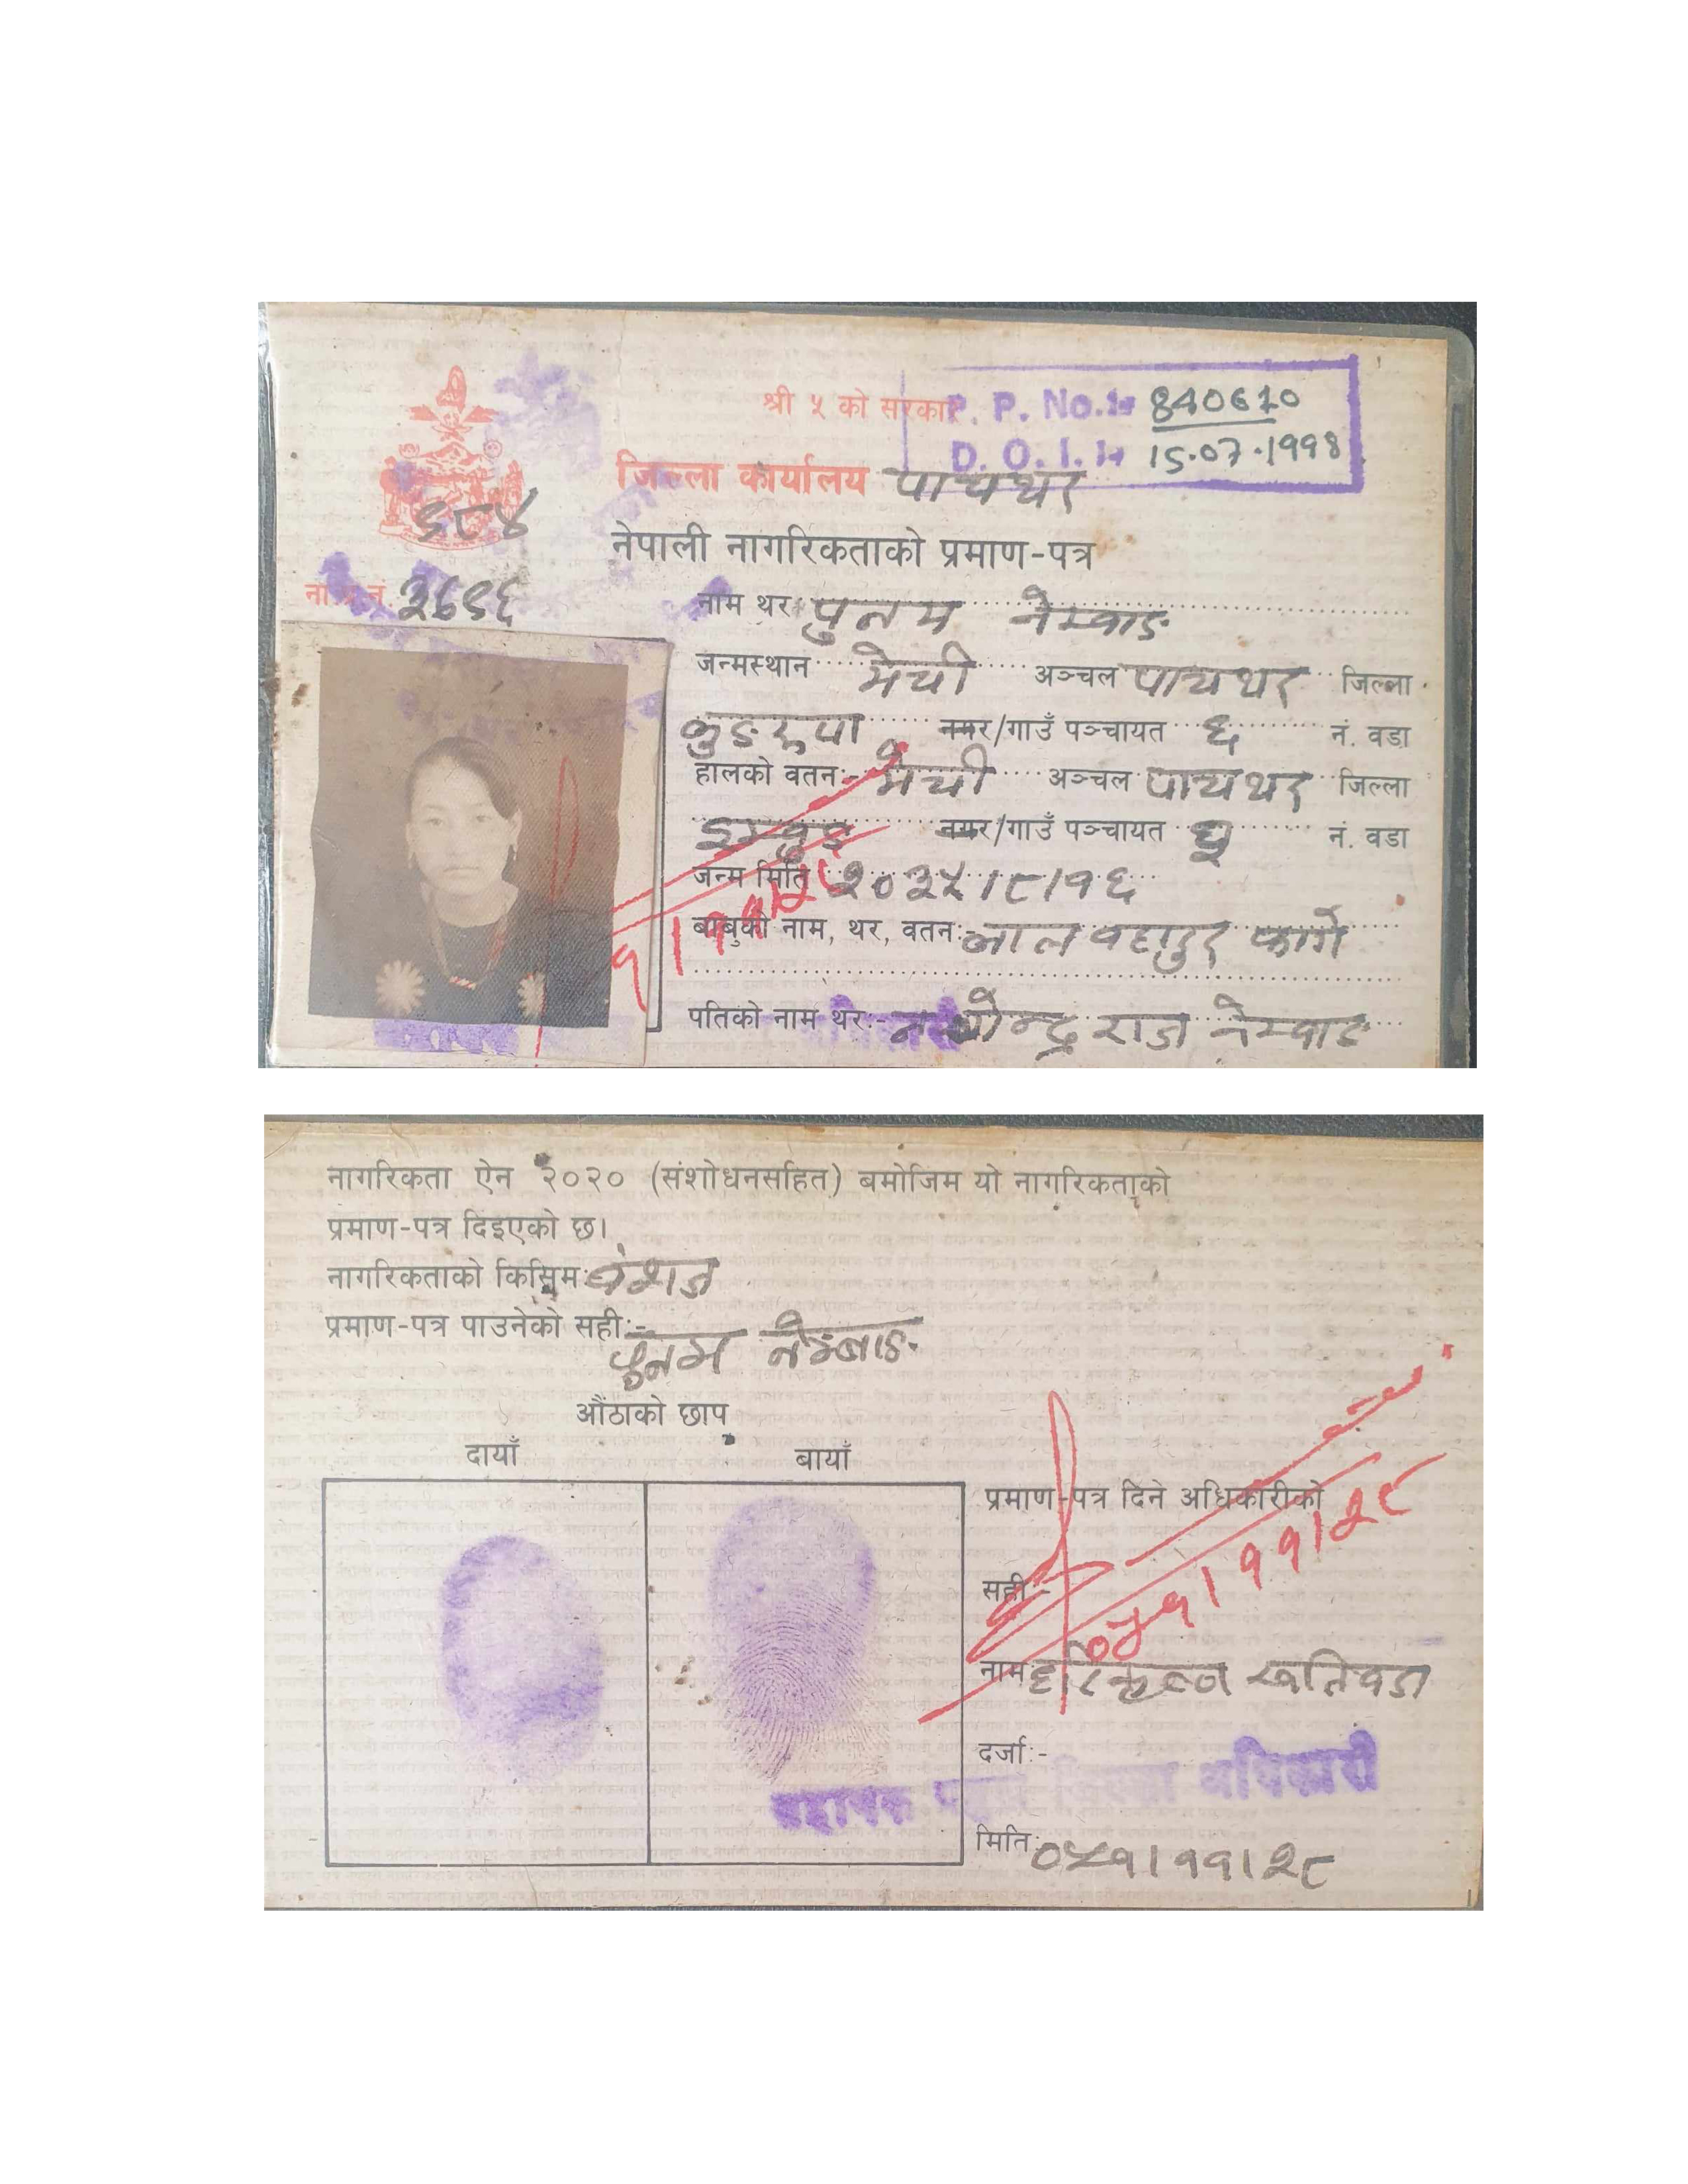 श्री ५ को सरकार
P. P. No. 840610
D. O. I. 15.07.1998
जिल्ला कार्यालय पाचथर
६८४
नेपाली नागरिकताको प्रमाण-पत्र
ना. प्र. नं. ३६९६
नाम थर पुनम नेम्वाङ
जन्मस्थान मेची अञ्चल पाचथर जिल्ला
नगर/गाउँ पञ्चायत ६ नं. वडा
हालको वतन:- मेची अञ्चल पाचथर जिल्ला
नगर/गाउँ पञ्चायत नं. वडा
जन्म मिति २०३५।८।१६
बाबुको नाम, थर, वतन:- लाल वहादुर फागो
पतिको नाम थर:- राज नेम्वाङ
नागरिकता ऐन २०२० (संशोधनसहित) बमोजिम यो नागरिकताको
प्रमाण-पत्र दिइएको छ।
नागरिकताको किसिम:- वंशज
प्रमाण-पत्र पाउनेको सही:-
पुनम नेम्बाङ
औंठाको छाप
दायाँ बायाँ
प्रमाण-पत्र दिने अधिकारीको
सही:-
०५१।११।२८
नाम हरिकृष्ण खतिवडा
दर्जा:-
सहायक प्रमुख जिल्ला अधिकारी
मिति:- ०५१।११।२८